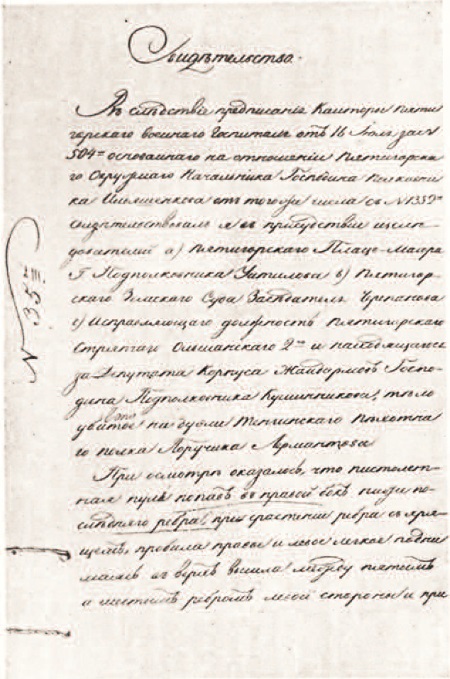 Свидѣтельство.
Въ слѣдствіе предписанія Канторы пяти
горскаго военнаго Госпиталя отъ 16 Іюля за №
504= основаннаго на отношеніи Пятигорска
го Окружнаго Начальника Господина Полковни
ка Ильяшенкова отъ того же числа съ № 1352=
Свидѣтельствовалъ я въ присутствіи изслѣ
дователей а) Пятигорскаго Плацъ-Маіора
Г Подполковника Унтилова в) Пятигор
скаго Земскаго Суда Засѣдателя Черепанова
с) Исправляющаго должность Пятигорскаго
Стряпчаго Ольшанскаго 2го и находящагося
за Депутата Корпуса Жандармовъ Госпо
дина Подполковника Кушинникова, тѣло
убитаго на дуэли Тенгинскаго Пѣхотна
го полка Поручика Лермантова
При осмотрѣ оказалось, что пистолет
ная пуля попавъ въ правой бокъ ниже по
слѣдняго ребра, при срастеніи ребра съ хря
щемъ, пробила правое и лѣвое легкое подни
маясь въ верхъ вышла между пятымъ
и шестымъ ребромъ лѣвой стороны и при
№ 35